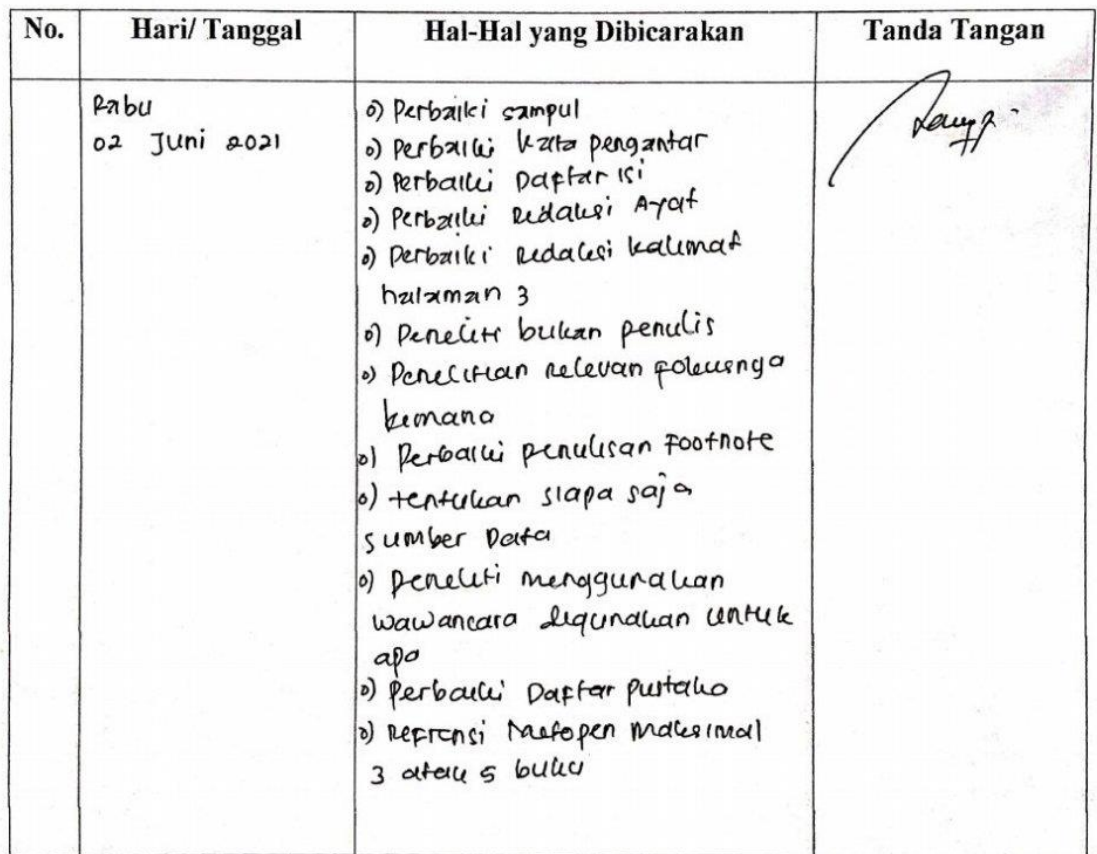 No. Hari/ Tanggal Hal-Hal yang Dibicarakan Tanda Tangan
Rabu
02 Juni 2021
o) Perbaiki sampul
o) Perbaiki kata pengantar
o) Perbaiki Daftar isi
o) Perbaiki Redaksi Ayat
o) Perbaiki Redaksi kalimat
halaman 3
o) Peneliti bukan penulis
o) Penelitian relevan fokusnya
kemana
o) Perbaiki penulisan Footnote
o) tentukan siapa saja
sumber Data
o) Peneliti menggunakan
wawancara digunakan untuk
apa
o) Perbaiki Daftar pustaka
o) Refrensi Metopen maksimal
3 atau 5 buku